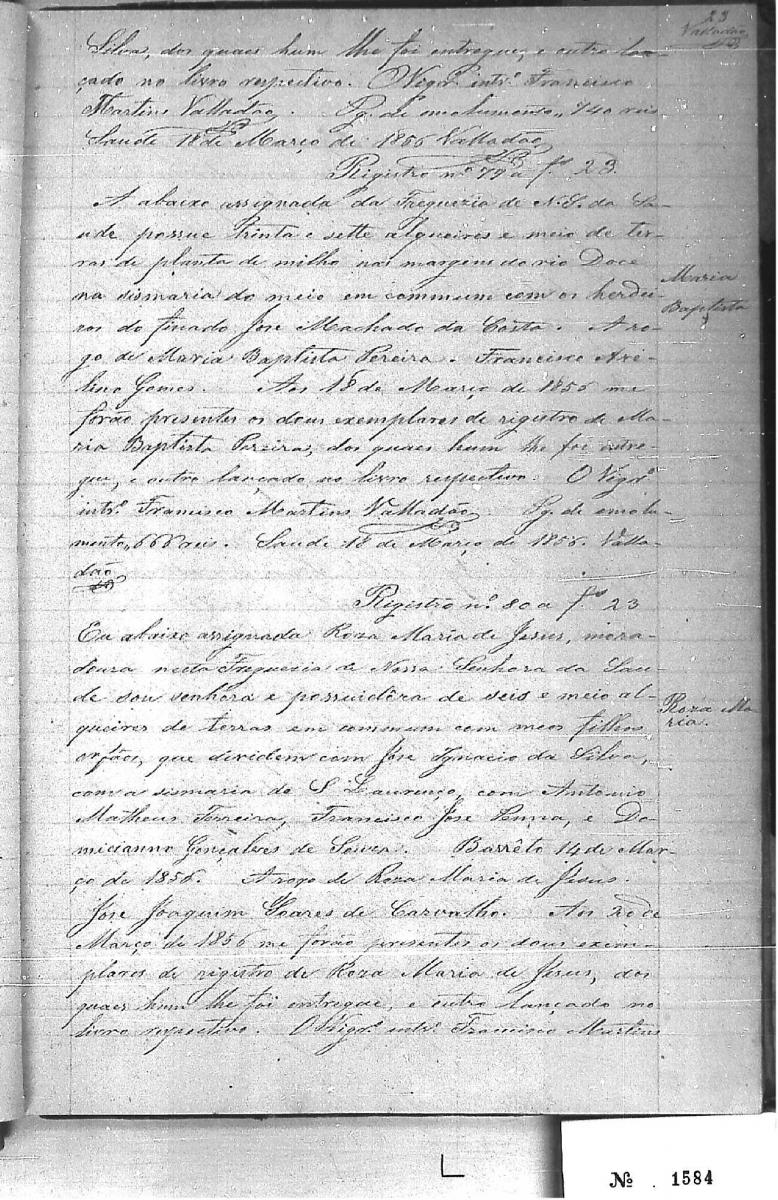 23
Valladão
Silva, dos quaes hum lhe foi entregue, e outro lan-
çado no livro respectivo. O Vigrº intrº Francisco
Martins Valladão. Pg. de emolumento, 740 reis
Saude 18 de Março de 1856 Valladão
Registro nº 79 a fˢ 23.
A abaixo assignada da Freguezia de N. S. da Sa-
ude possue trinta e sette alqueires e meio de ter-
ras de planta de milho nas margens do rio Doce
na sismaria do meio em commum com os herdei-
ros do finado Jose Machado da Costa. A ro-
go de Maria Baptista Pereira. Francisco Ave-
lino Gomes. Aos 18 de Março de 1856 me
forão presentes os dous exemplares de registro de Ma-
ria Baptista Pereira, dos quaes hum lhe foi entre-
gue, e outro lançado no livro respectivo. O Vigrº
intrº Francisco Martins Valladão. Pg. de emolu-
mento, 666 reis. Saude 18 de Março de 1856. Valla-
dão
Maria
Baptista
Registro nº 80 a fˢ 23
Eu abaixo assignada Roza Maria de Jesus, mora-
doura nesta Freguezia de Nossa Senhora da Sau-
de sou senhora e possuidôra de seis e meio al-
queires de terras em commum com meos filhos
orfãos, que dividem com Jose Ignacio da Silva,
com a sismaria de S Laurenço, com Antonio
Matheus Ferreira, Francisco Jose Penna, e Do-
micianno Gonçalves de Souza. Barrêto 14 de Mar-
ço de 1856. A rogo de Roza Maria de Jesus.
Jose Joaquim Soares de Carvalho. Aos 20 de
Março de 1856 me forão presentes os dous exem-
plares de registro de Roza Maria de Jesus, dos
quaes hum lhe foi entregue, e outro lançado no
livro respectivo. O Vigrº intrº Francisco Martins
Roza Ma
ria.
Nº . 1584